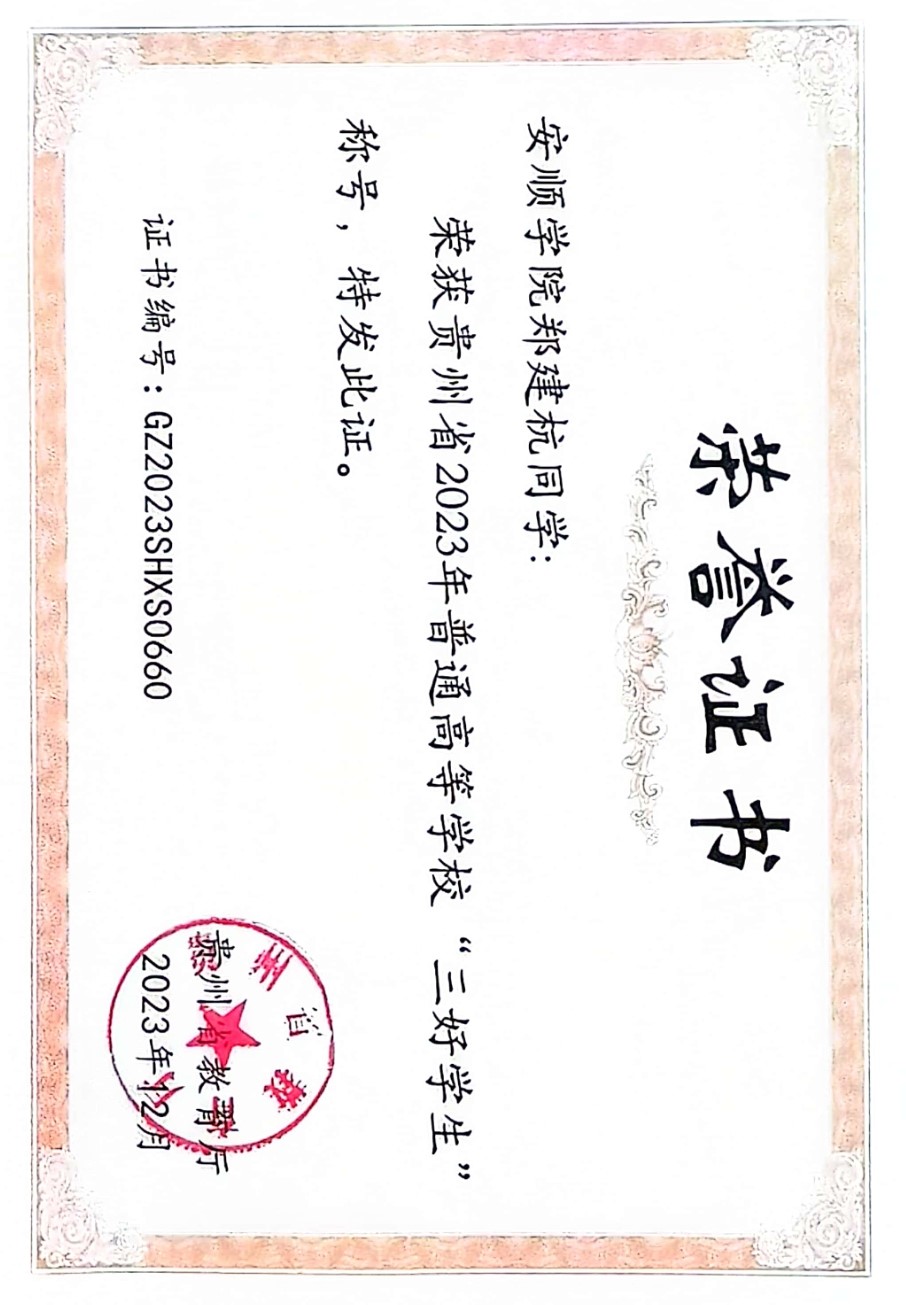 荣誉证书
安顺学院郑建杭同学：
荣获贵州省2023年普通高等学校“三好学生”
称号，特发此证。
证书编号：GZ2023SHXS0660
贵州省教育厅
2023年12月